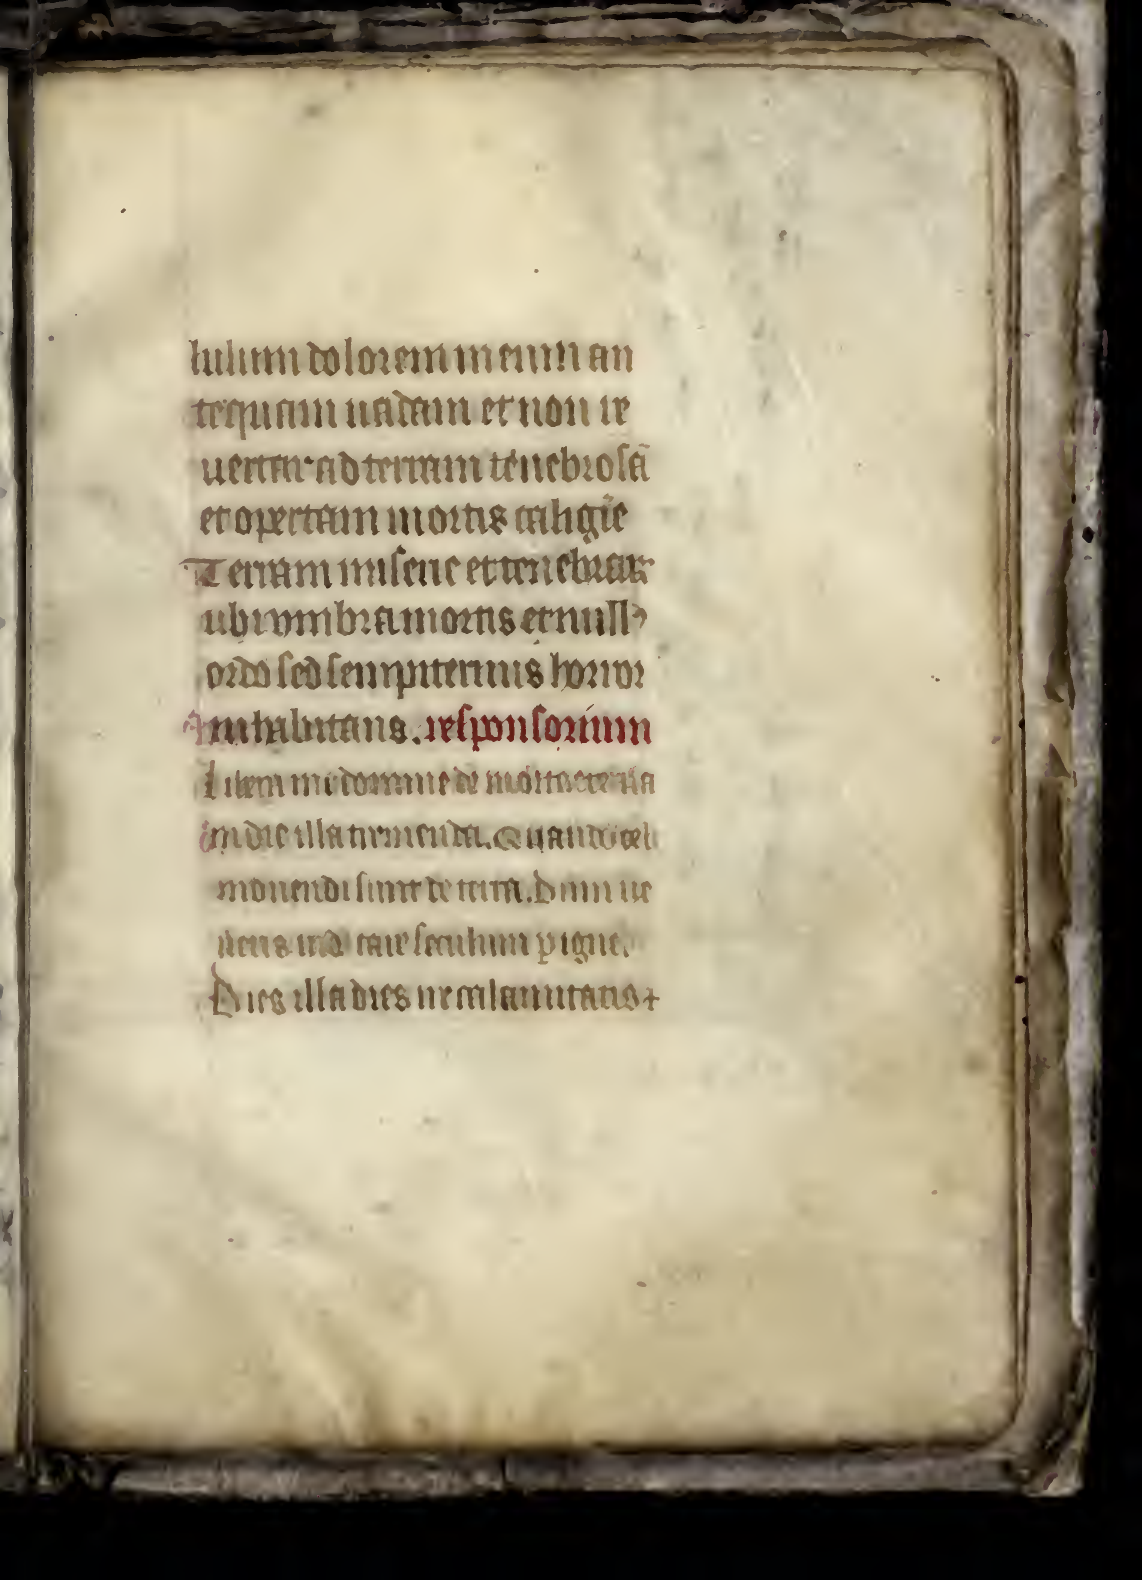 lulum dolorem meum an
tequam uadam et non re
uertar ad terram tenebrosã
et opertam mortis caligiē
Terram miserie et tenebrarꝝ
ubi vmbra mortis et null9
ordo sed sempiternus horror
inhabitans. responsorium
Libera me domine de morte eterna
in die illa tremenda. Quando celi
mouendi sunt et terra. Dum ue
neris iudicare seculum p igne.
Dies illa dies ire calamitatis ⁊